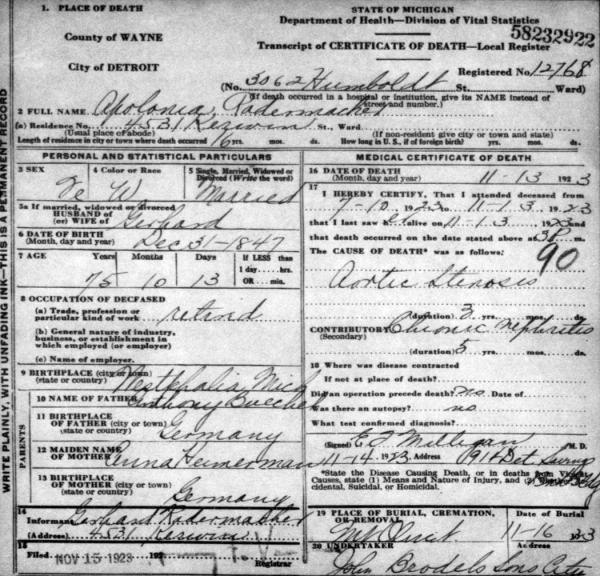 1. PLACE OF DEATH
County of WAYNE
City of DETROIT
STATE OF MICHIGAN
Department of Health—Division of Vital Statistics
58232922
Transcript of CERTIFICATE OF DEATH—Local Register
Registered No. 12768
(No. 3062 Humboldt St. Ward)
(If death occurred in a hospital or institution, give its NAME instead of street and number.)
2 FULL NAME Apolonia Radermacher
(a) Residence No. 4531 St., Ward.
(Usual place of abode) (If non-resident give city or town and state)
Length of residence in city or town where death occurred 16 yrs. mos. ds. How long in U.S., if of foreign birth? yrs. mos. ds.
PERSONAL AND STATISTICAL PARTICULARS
3 SEX 4 Color or Race 5 Single, Married, Widowed or Divorced (Write the word)
Fe W Married
5a If married, widowed or divorced
HUSBAND of
(or) WIFE of Gerhard
6 DATE OF BIRTH
(Month, day and year) Dec 31-1847
7 AGE Years Months Days If LESS than
1 day....hrs.
75 10 13 OR.... min.
8 OCCUPATION OF DECEASED
(a) Trade, profession or
particular kind of work retired
(b) General nature of industry,
business, or establishment in
which employed (or employer)
(c) Name of employer.
9 BIRTHPLACE (city or town)
(state or country) Westphalia Mich
10 NAME OF FATHER Anthony
11 BIRTHPLACE
OF FATHER (city or town)
(state or country) Germany
PARENTS
12 MAIDEN NAME
OF MOTHER Anna
13 BIRTHPLACE
OF MOTHER (city or town)
(state or country) Germany
14
Informant Gerhard Radermacher
(Address) 4531
15
Filed NOV 15 1923 192 Registrar
MEDICAL CERTIFICATE OF DEATH
16 DATE OF DEATH
(Month, day and year) 11-13 1923
17
I HEREBY CERTIFY, That I attended deceased from
7-10 1923 11-13 1923
that I last saw alive on 11-13 1923 and
that death occurred on the date stated above at m.
The CAUSE OF DEATH* was as follows:
90
Aortic Stenosis
(duration) 3 yrs. mos. ds.
CONTRIBUTORY Chronic Nephritis
(Secondary)
(duration) 5 yrs. mos. ds.
18 Where was disease contracted
If not at place of death?
Did an operation precede death? no Date of
Was there an autopsy? no
What test confirmed diagnosis?
(Signed) Milligan M. D.
11-14 1923 Address
*State the Disease Causing Death, or in deaths from Violent Causes, state (1) Means and Nature of Injury, and (2) whether Accidental, Suicidal, or Homicidal.
19 PLACE OF BURIAL, CREMATION, OR REMOVAL Date of Burial
Mt Olivet 11-16 1923
20 UNDERTAKER Address
John Brodels Sons City
WRITE PLAINLY, WITH UNFADING INK—THIS IS A PERMANENT RECORD